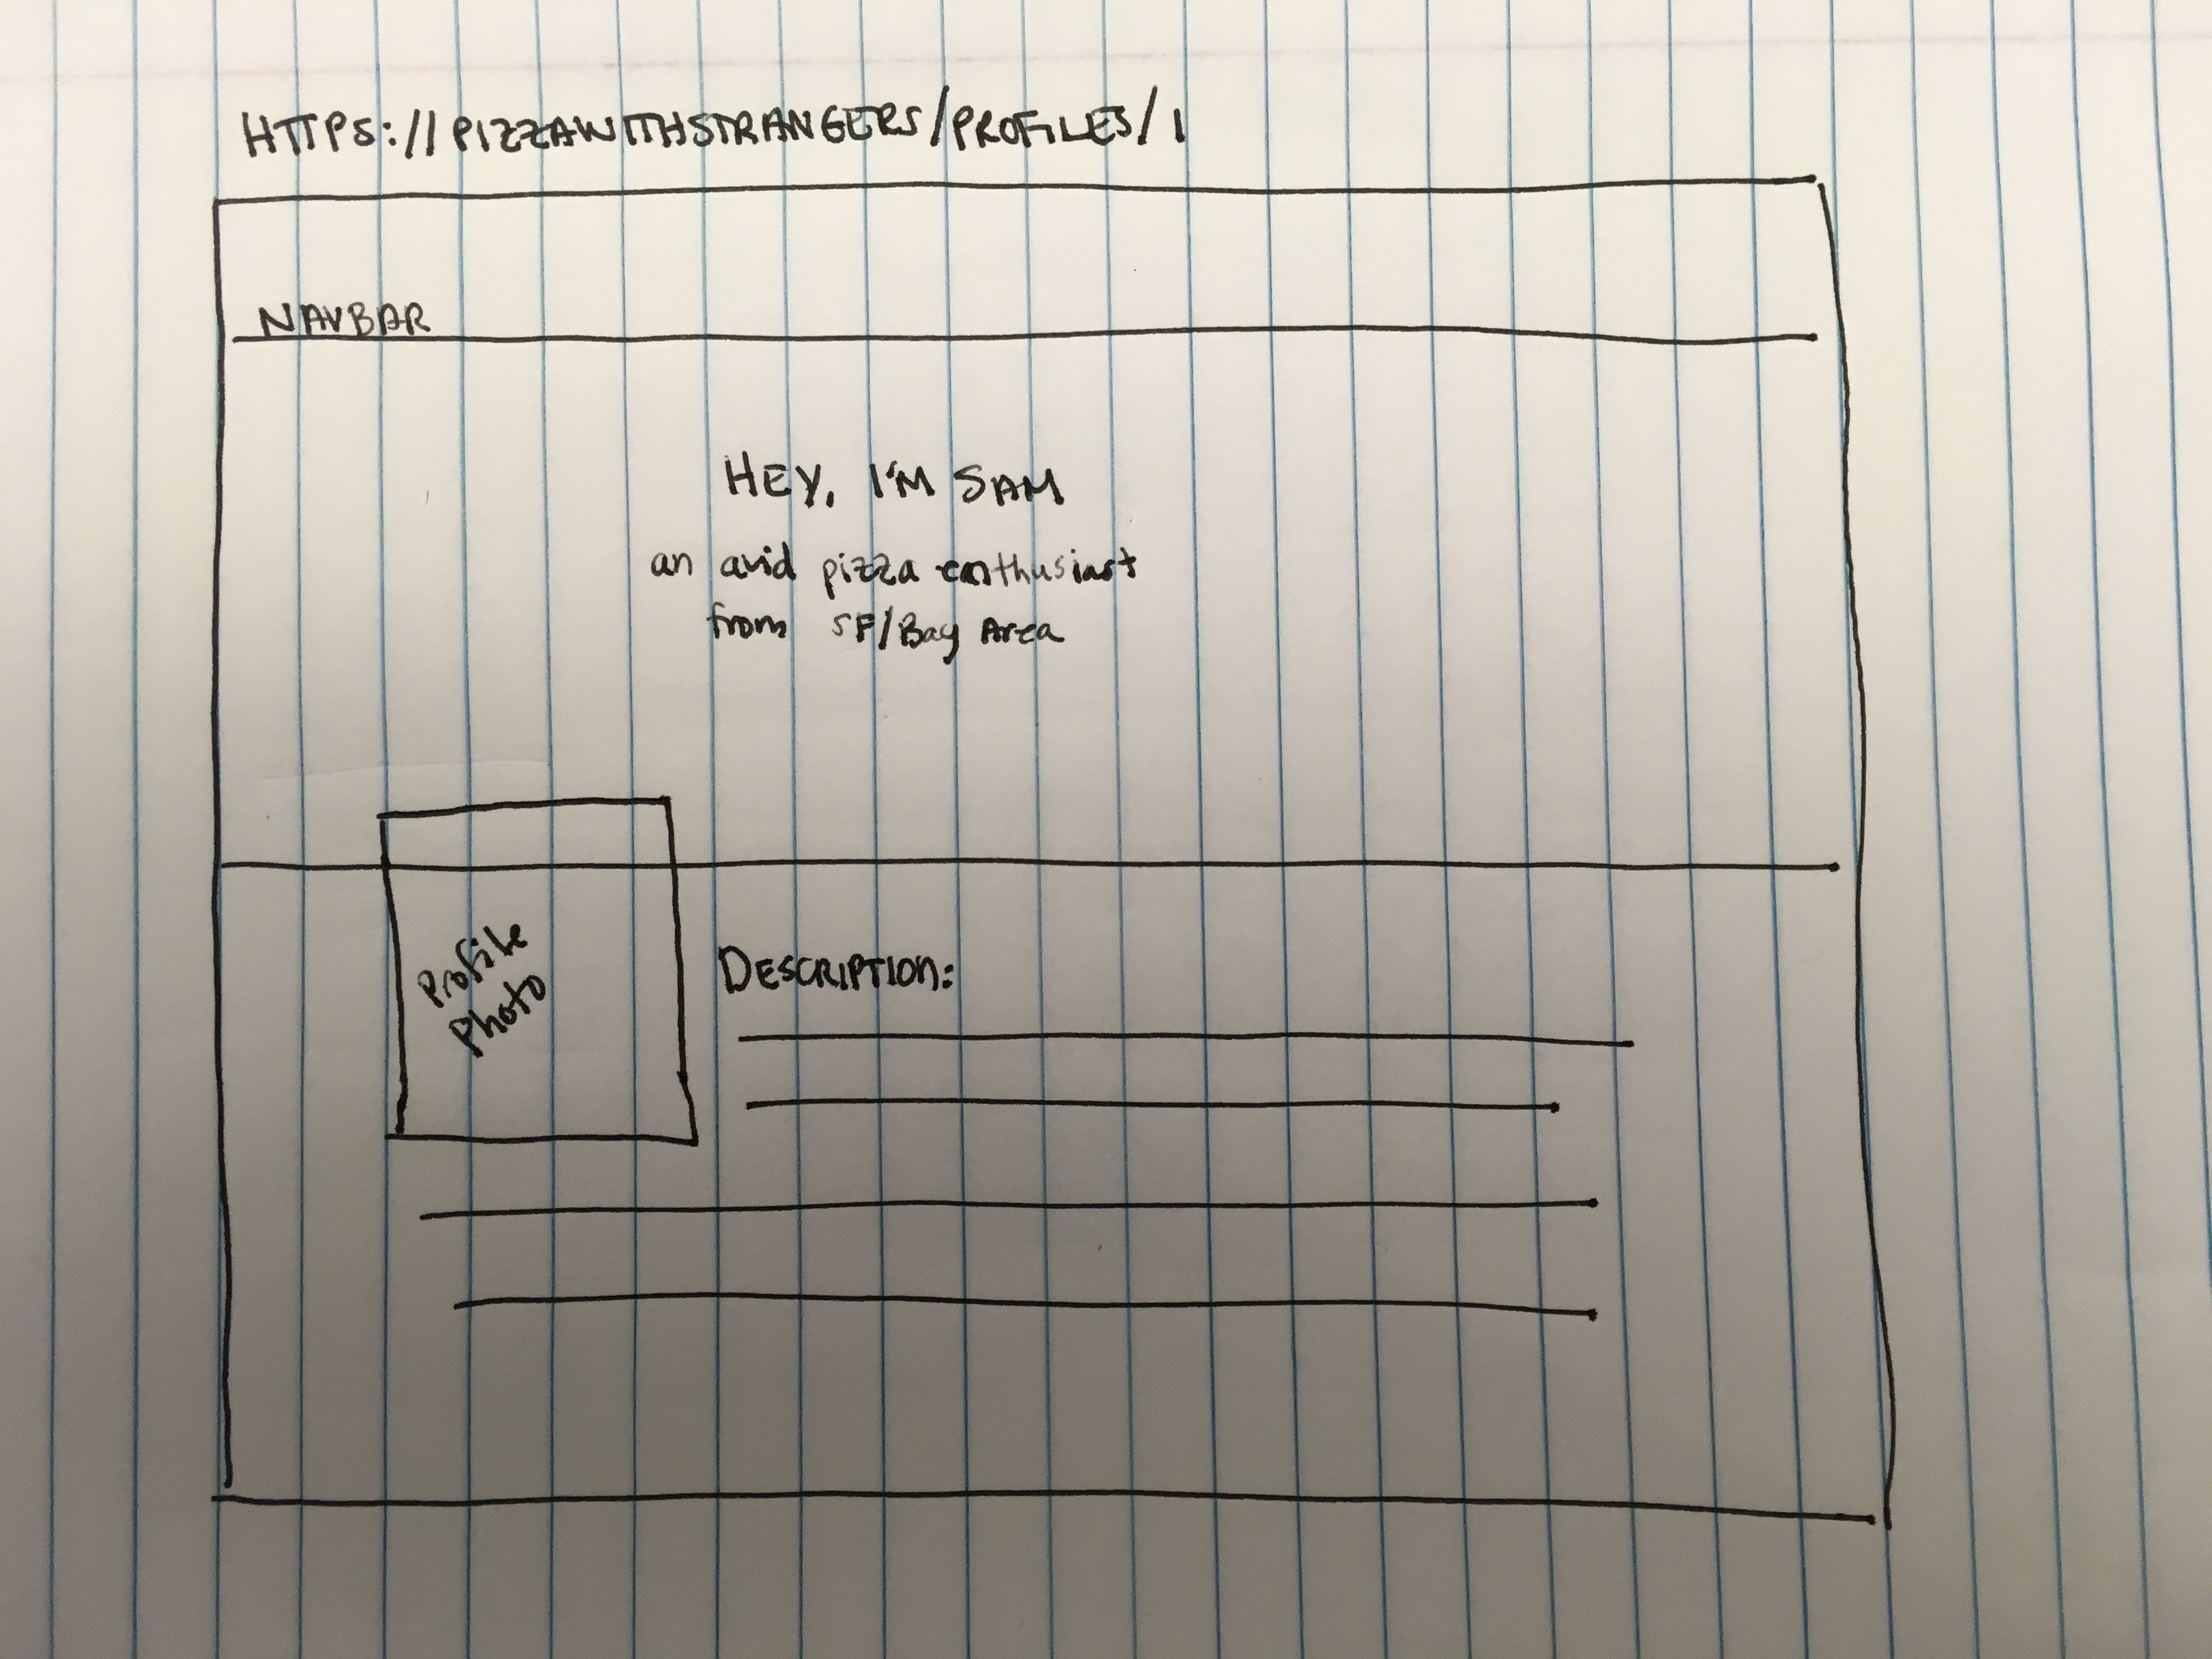 HTTPS://PIZZAWITHSTRANGERS/PROFILES/1
NAVBAR
HEY, I'M SAM
an avid pizza enthusiast
from SF/Bay Area
Profile
Photo
DESCRIPTION: